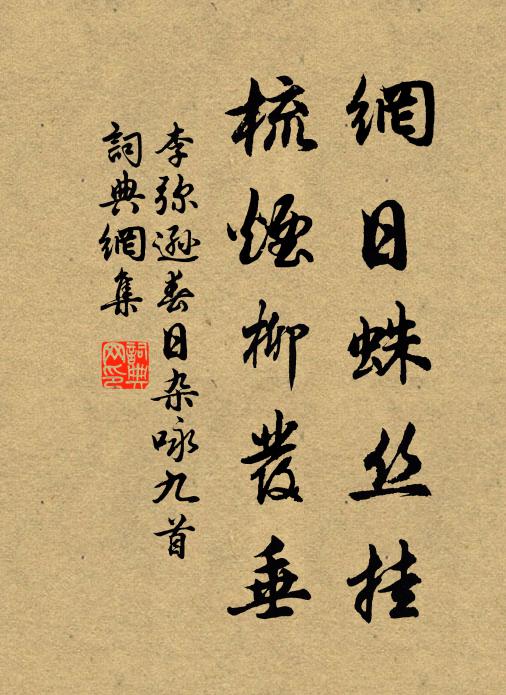 網日蛛丝挂
梳煙柳發垂
李弥遜春日杂咏九首
詞典網集
詞典
网印